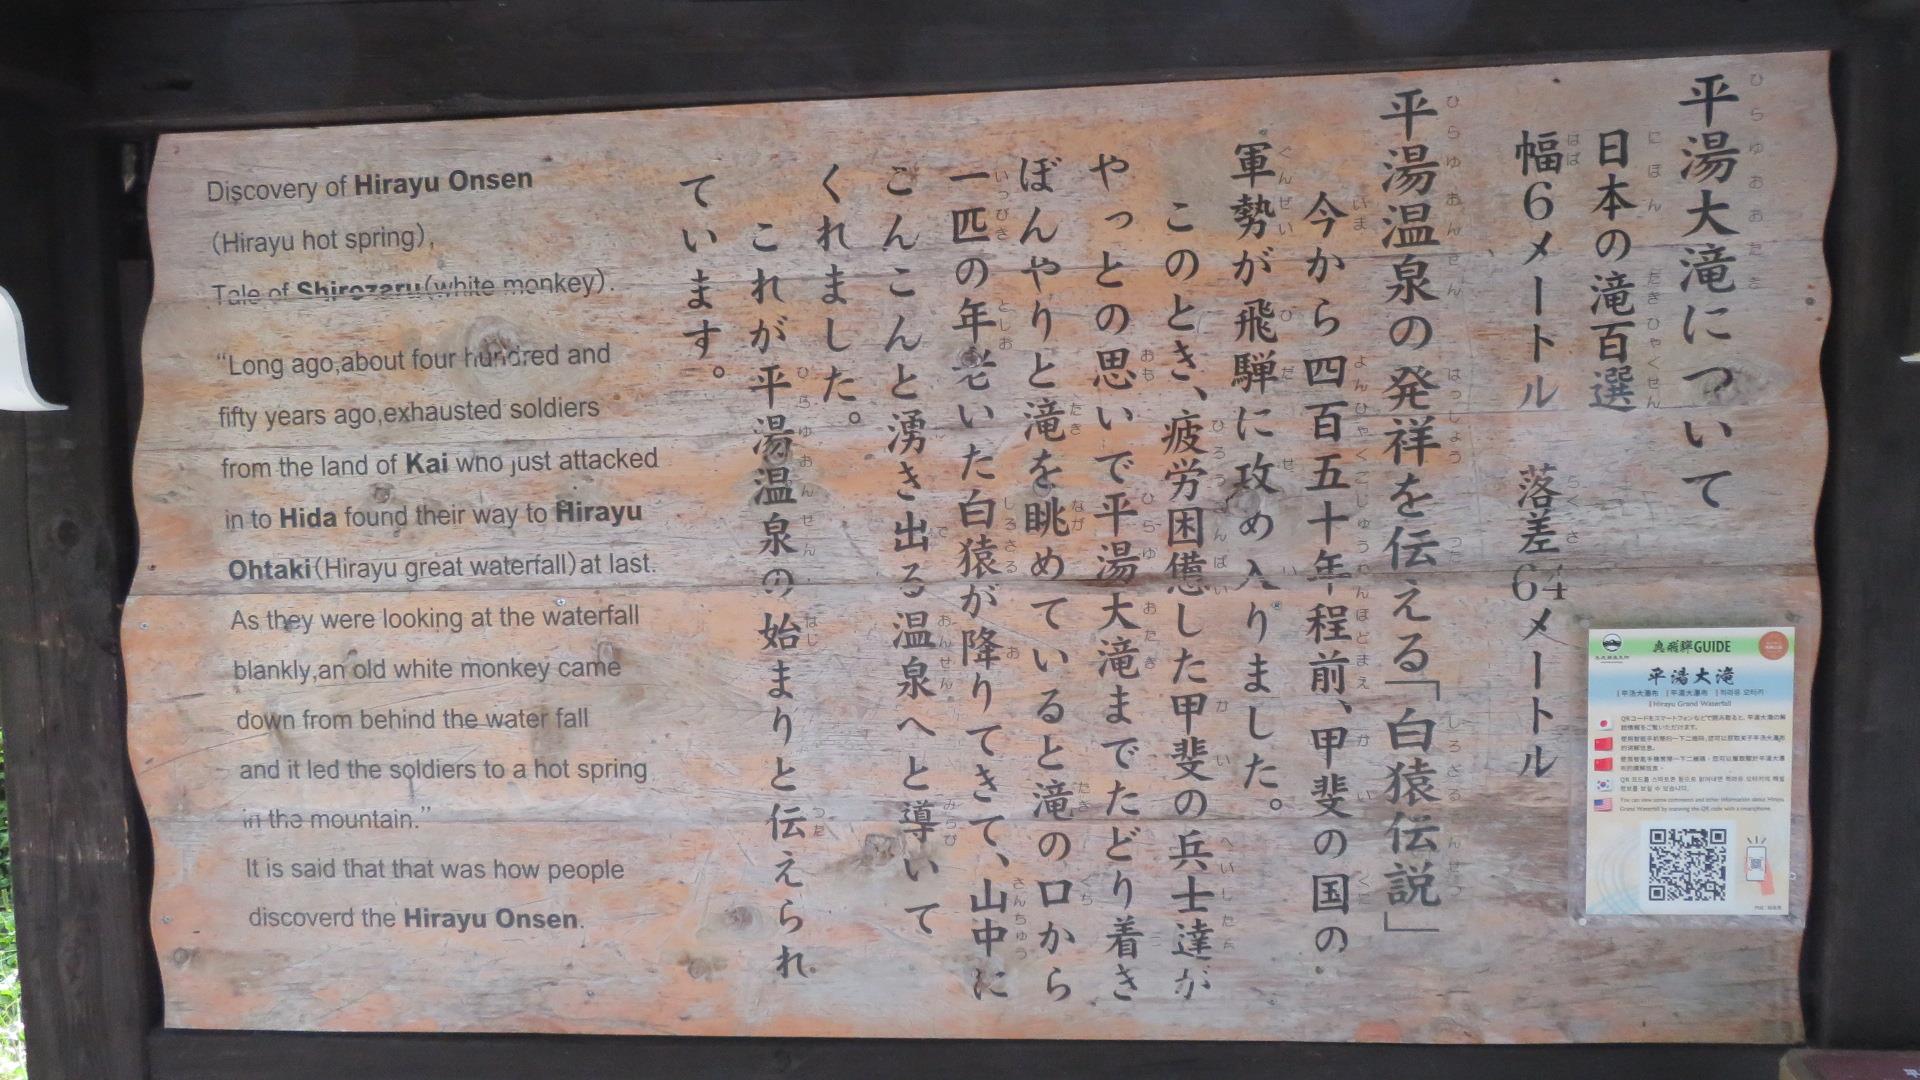 平湯大滝について
日本の滝百選
幅6メートル 落差64メートル
平湯温泉の発祥を伝える「白猿伝説」
今から四百五十年程前、甲斐の国の
軍勢が飛騨に攻め入りました。
このとき、疲労困憊した甲斐の兵士達が
やっとの思いで平湯大滝までたどり着き
ぼんやりと滝を眺めていると滝の口から
一匹の年老いた白猿が降りてきて、山中に
こんこんと湧き出る温泉へと導いて
くれました。
これが平湯温泉の始まりと伝えられ
ています。
Discovery of Hirayu Onsen
(Hirayu hot spring),
Tale of Shirozaru(white monkey).
“Long ago,about four hundred and
fifty years ago,exhausted soldiers
from the land of Kai who just attacked
in to Hida found their way to Hirayu
Ohtaki(Hirayu great waterfall)at last.
As they were looking at the waterfall
blankly,an old white monkey came
down from behind the water fall
and it led the soldiers to a hot spring
in the mountain.”
It is said that that was how people
discoverd the Hirayu Onsen.
奥飛騨GUIDE
平湯大滝
Hirayu Grand Waterfall
QRコードをスマートフォンなどで読み取ると、平湯大滝の解
説情報をご覧いただけます。
You can view some comments and other information about Hirayu
Grand Waterfall by scanning the QR code with a smartphone.